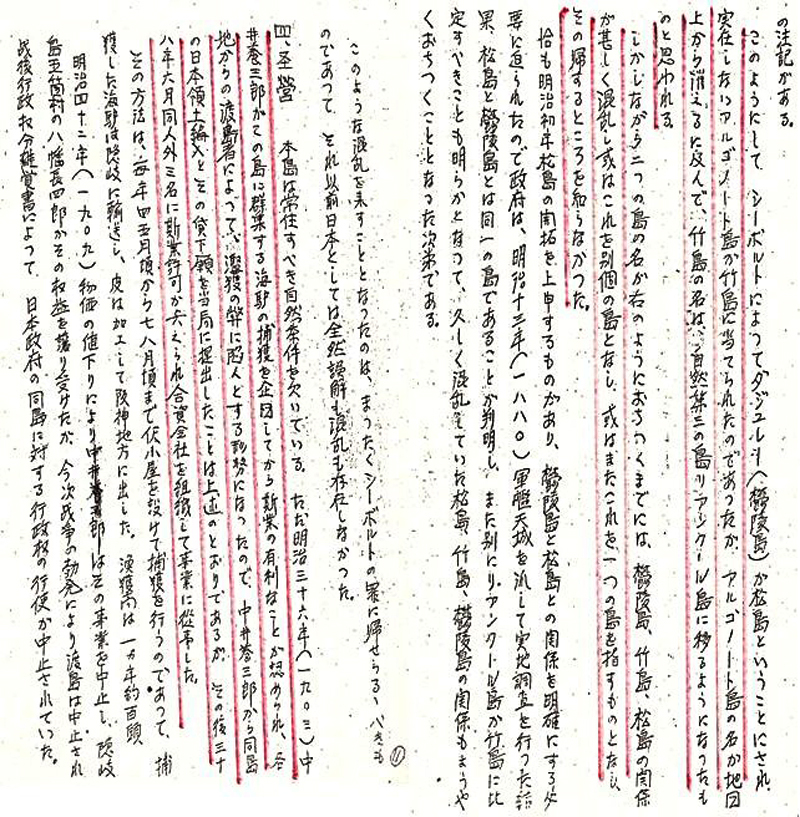 の注記がある。
このようにして、シーボルトによつてダジュレー(欝陵島)が松島ということにされ、
実在しないアルゴノート島が竹島に当てられたのであつたが、アルゴノート島の名が地図
上から消えるに及んで、竹島の名は、自然第三の島リアンクール島に移るようになつたも
のと思われる。
しかしながら二つの島の名が右のようにおちつくまでには、欝陵島、竹島、松島の関係
が甚しく混乱し或はこれを別個の島となし、或はまたこれを一つの島を指すものとなし、
その帰するところを知らなかつた。
恰も明治初年松島の開拓を上申するものがあり、欝陵島と松島との関係を明確にする必
要に迫られたので政府は、明治十三年(一八八〇)軍艦天城を派して実地調査を行つた結
果、松島と欝陵島とは同一の島であることが判明し、また別にリアンクール島が竹島に比
定すべきことも明らかとなつて、久しく混乱していた松島、竹島、欝陵島の関係もようや
くおちつくこととなつた次第である。
このような混乱を来すこととなつたのは、まつたくシーボルトの罪に帰せらるべきも
のであつて、それ以前日本としては全然誤解も混乱も存在しなかつた。
四、経営
本島は常住すべき自然条件を欠いている。ただ明治三十六年(一九〇三)中
井養三郎がこの島に群集する海驢の捕獲を企図してから斯業の有利なことが認められ、各
地からの渡島者によつて、濫獲の弊に陥入とする形勢になつたので、中井養三郎から同島
の日本領土編入とその貸下願を当局に提出したことは上述のとおりであるが、その後三十
八年六月同人外三名に斯業許可が与えられ合資会社を組織して事業に従事した。
その方法は、毎年四五月頃から七八月頃まで伏小屋を設けて捕獲を行うのであつて、捕
獲した海驢は隠岐に輸送し、皮は加工して阪神地方に出した。漁獲高は一カ年約百頭
明治四十二年(一九〇九)物価の値下りにより中井養三郎はその事業を中止し、隠岐
島五箇村の八幡長四郎がその权益を譲り受けたが、今次战争の勃発により渡島は中止され
战後行政权分離覚書によつて、日本政府の同島に対する行政权の行使が中止されていた。